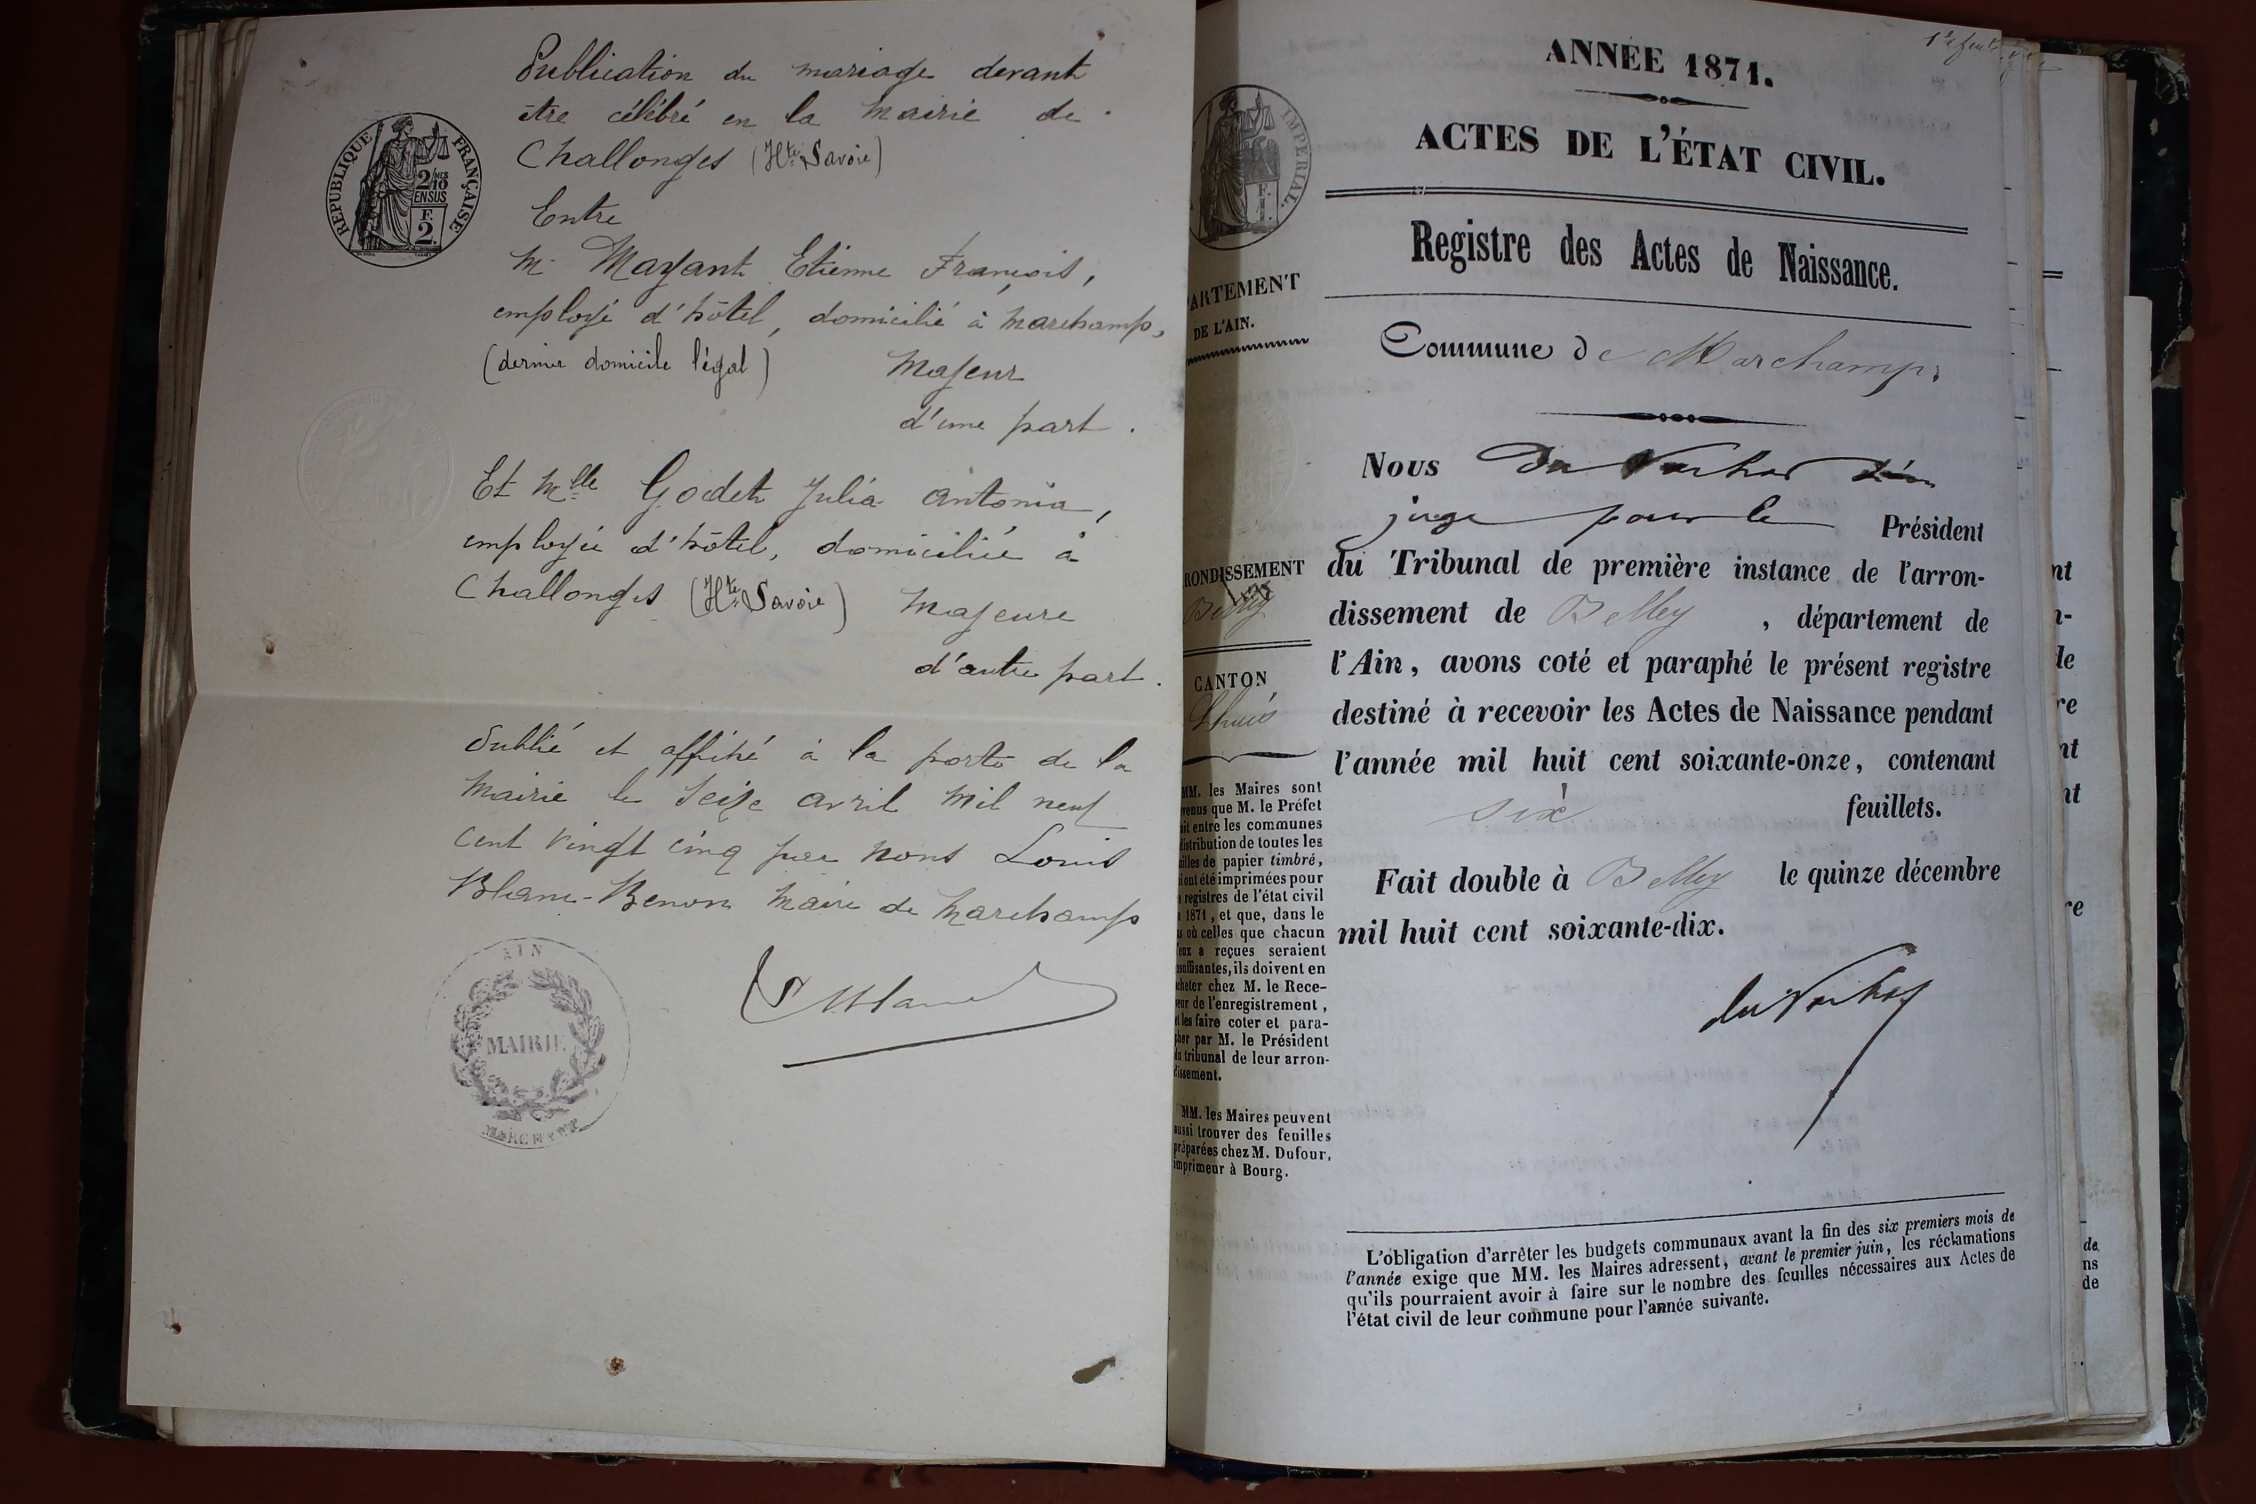 Publication du mariage devant
être célébré en la Mairie de
Challonges (Hte Savoie)
RÉPUBLIQUE FRANÇAISE
2/10
EN SUS
F.
2.
Entre
Mr Mayant Etienne François,
employé d'hôtel, domicilié à Marchamp,
(dernier domicile légal) Majeur
d'une part.
Et Mlle Godet Julia Antonia,
employée d'hôtel, domiciliée à
Challonges (Hte Savoie) Majeure
d'autre part.
Publié et affiché à la porte de la
Mairie le seize avril mil neuf
cent vingt cinq par nous Louis
Blanc-Benon Maire de Marchamp
AIN
MAIRIE
ANNÉE 1871.
ACTES DE L'ÉTAT CIVIL.
IMPÉRIAL
F.
1.
Registre des Actes de Naissance.
DE L'AIN.
Commune de Marchamp.
Nous
juge pour le Président
du Tribunal de première instance de l'arron-
dissement de Belley, département de
l'Ain, avons coté et paraphé le présent registre
destiné à recevoir les Actes de Naissance pendant
l'année mil huit cent soixante-onze, contenant
six feuillets.
Fait double à Belley le quinze décembre
mil huit cent soixante-dix.
CANTON
Lhuis
MM. les Maires sont
que M. le Préfet
entre les communes
distribution de toutes les
de papier timbré,
été imprimées pour
registres de l'état civil
1871, et que, dans le
où celles que chacun
a reçues seraient
insuffisantes, ils doivent en
acheter chez M. le Rece-
de l'enregistrement,
les faire coter et para-
par M. le Président
tribunal de leur arron-
dissement.
MM. les Maires peuvent
aussi trouver des feuilles
préparées chez M. Dufour,
imprimeur à Bourg.
L'obligation d'arrêter les budgets communaux avant la fin des six premiers mois de
l'année exige que MM. les Maires adressent, avant le premier juin, les réclamations
qu'ils pourraient avoir à faire sur le nombre des feuilles nécessaires aux Actes de
l'état civil de leur commune pour l'année suivante.